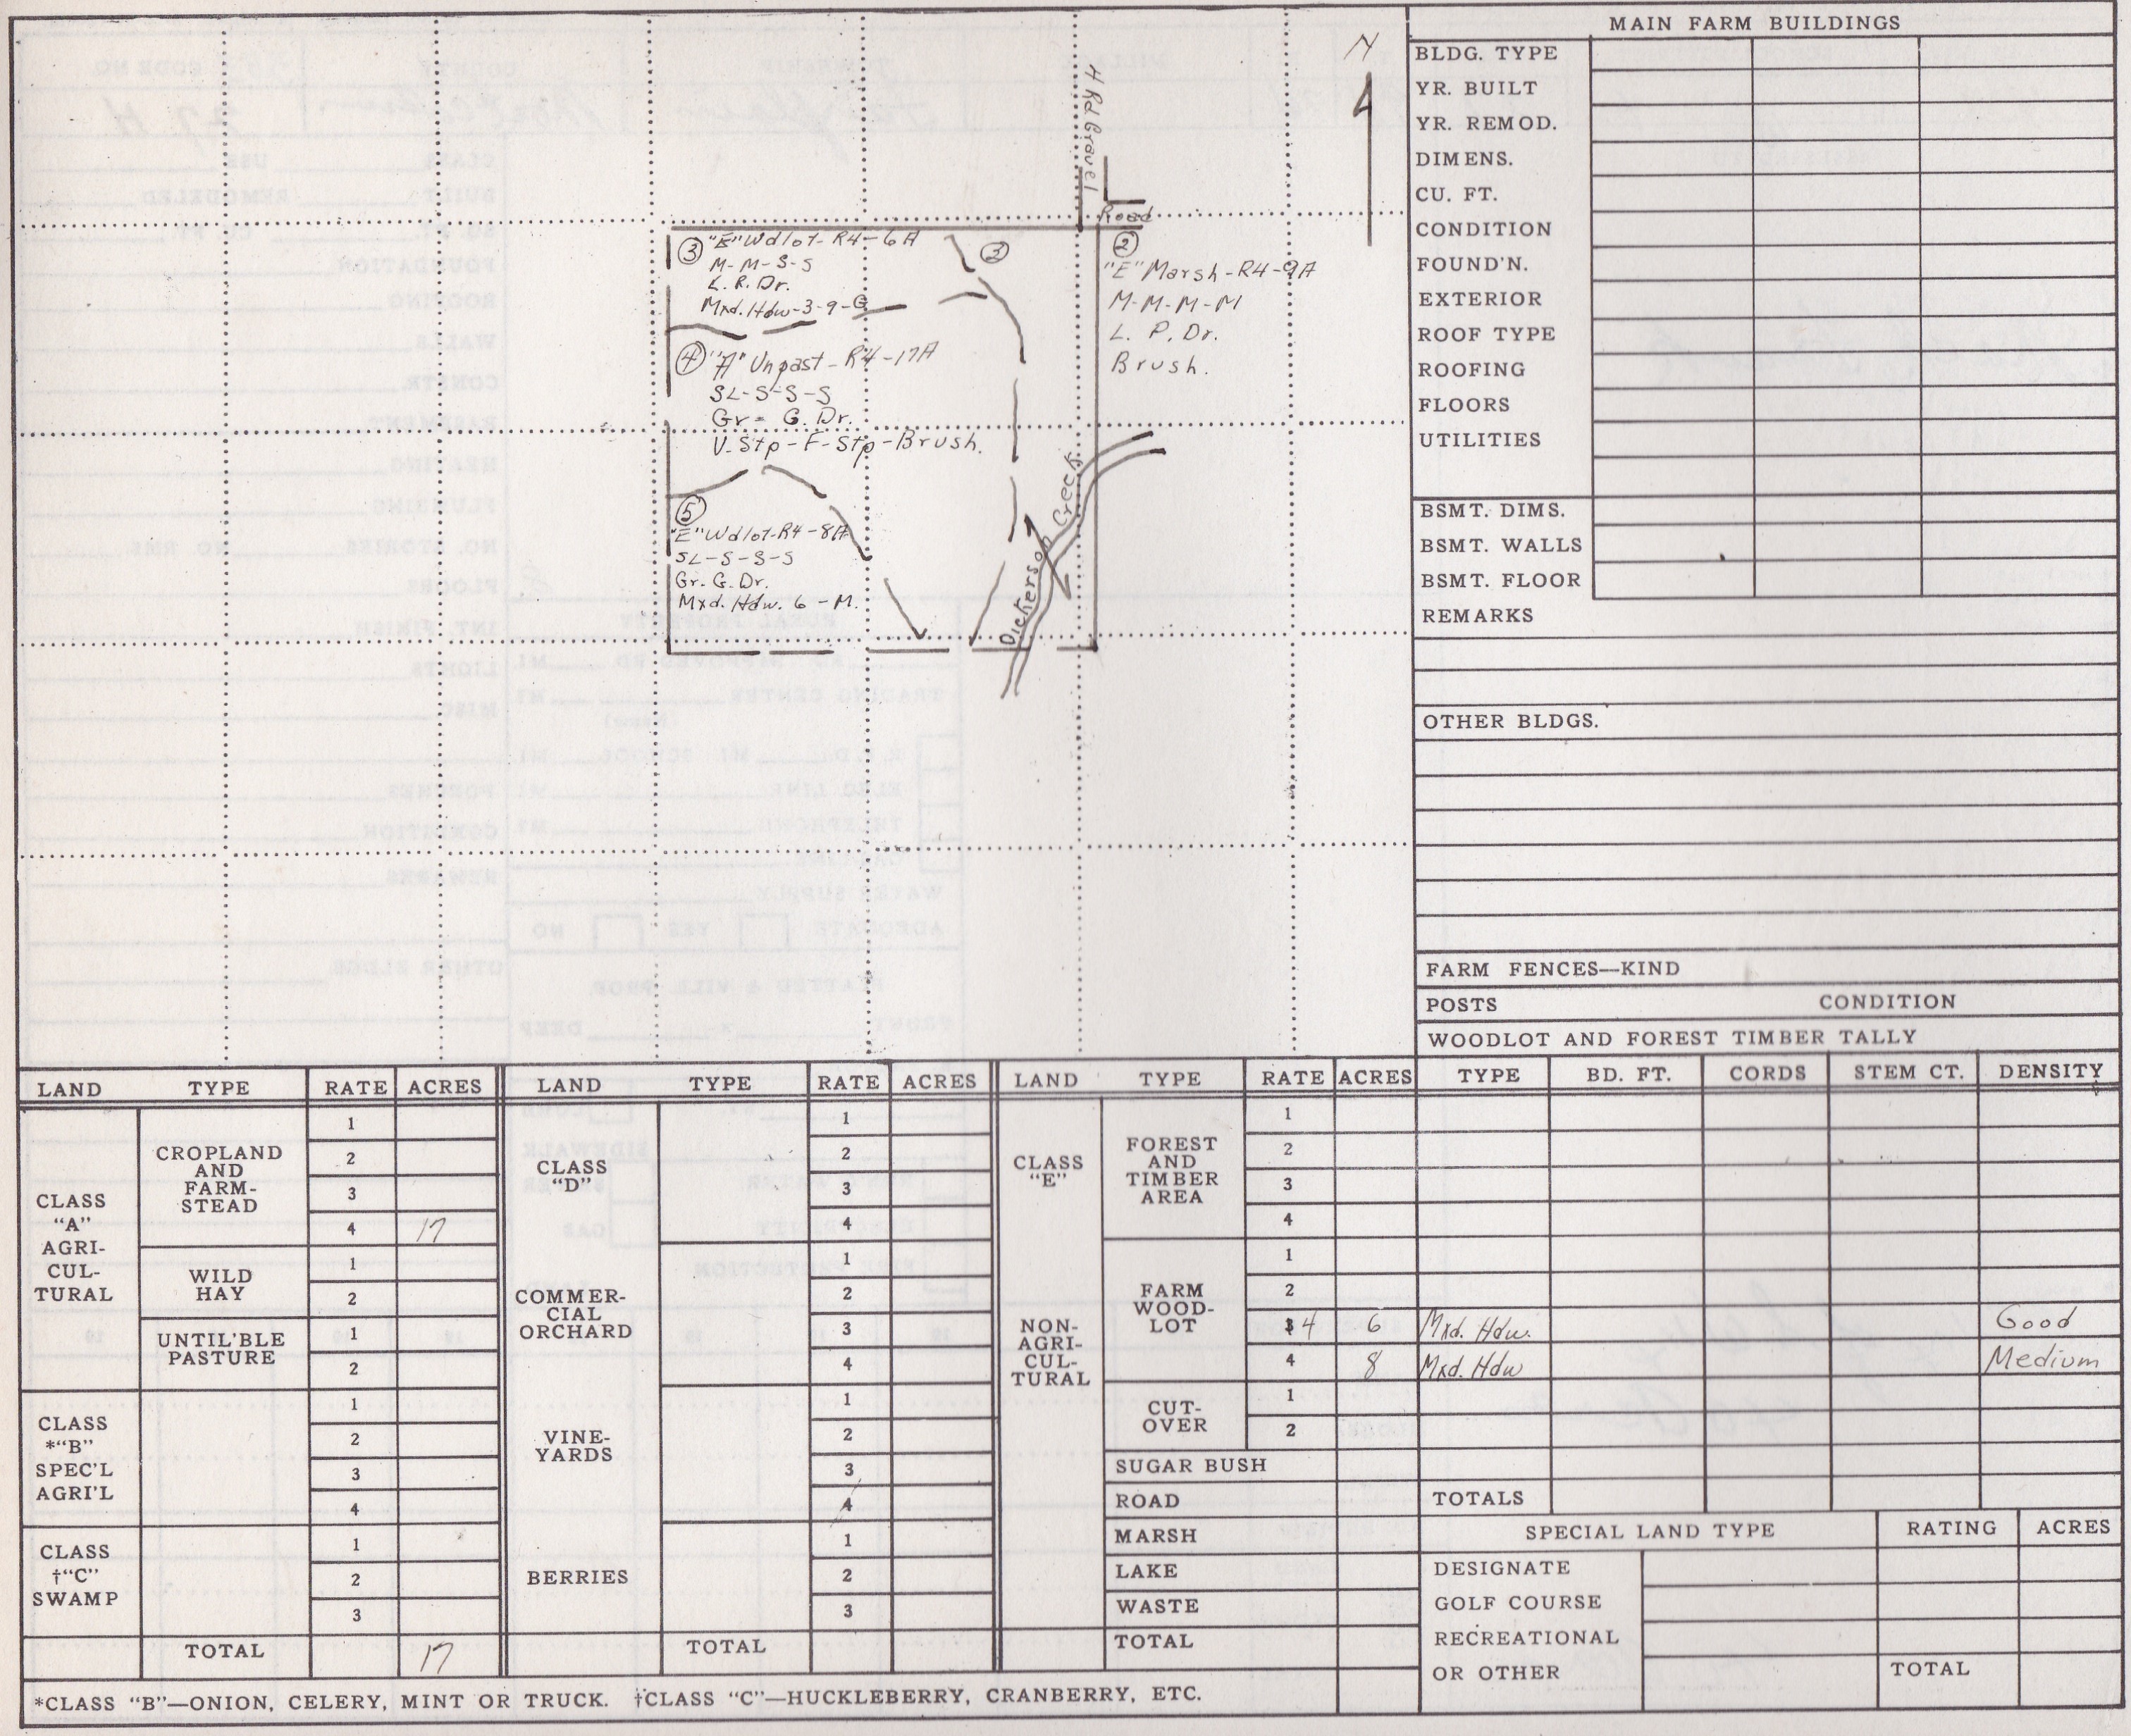 N
H Rd Gravel
Road
③ "E" Wdlot-R4-6A
M-M-S-S
L. R. Dr.
Mxd. Hdw-3-9-G
②
②
"E" Marsh-R4-9A
M-M-M-M
L. P. Dr.
Brush.
④ "A" Unpast-R4-17A
SL-S-S-S
Gr- G. Dr.
V. Stp-F-Stp-Brush.
⑤
"E" Wdlot-R4-8A
SL-S-S-S
Gr. G. Dr.
Mxd. Hdw. 6-M.
Dickerson Creek
MAIN FARM BUILDINGS
BLDG. TYPE
YR. BUILT
YR. REMOD.
DIMENS.
CU. FT.
CONDITION
FOUND'N.
EXTERIOR
ROOF TYPE
ROOFING
FLOORS
UTILITIES
BSMT. DIMS.
BSMT. WALLS
BSMT. FLOOR
REMARKS
OTHER BLDGS.
FARM FENCES—KIND
POSTS CONDITION
WOODLOT AND FOREST TIMBER TALLY
TYPE BD. FT. CORDS STEM CT. DENSITY
Mxd. Hdw. Good
Mxd. Hdw Medium
TOTALS
SPECIAL LAND TYPE RATING ACRES
DESIGNATE
GOLF COURSE
RECREATIONAL
OR OTHER TOTAL
LAND TYPE RATE ACRES
CLASS
"A"
AGRI-
CUL-
TURAL
CROPLAND
AND
FARM-
STEAD
1
2
3
4 17
WILD
HAY
1
2
UNTIL'BLE
PASTURE
1
2
CLASS
*"B"
SPEC'L
AGRI'L
1
2
3
4
CLASS
†"C"
SWAMP
1
2
3
TOTAL 17
LAND TYPE RATE ACRES
CLASS
"D"
1
2
3
4
COMMER-
CIAL
ORCHARD
1
2
3
4
VINE-
YARDS
1
2
3
4
BERRIES
1
2
3
TOTAL
LAND TYPE RATE ACRES
CLASS
"E"
NON-
AGRI-
CUL-
TURAL
FOREST
AND
TIMBER
AREA
1
2
3
4
FARM
WOOD-
LOT
1
2
3 4 6
4 8
CUT-
OVER
1
2
SUGAR BUSH
ROAD
MARSH
LAKE
WASTE
TOTAL
*CLASS "B"—ONION, CELERY, MINT OR TRUCK. †CLASS "C"—HUCKLEBERRY, CRANBERRY, ETC.